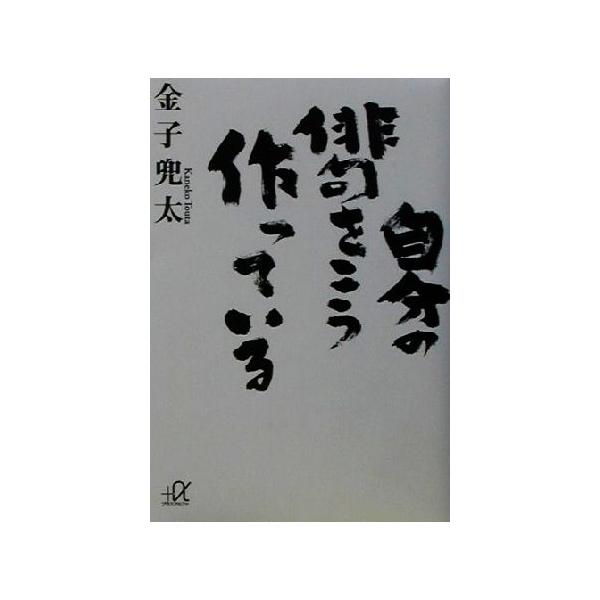 自分の
俳句をこう
作っている
金子兜太
Kaneko Touta
+α